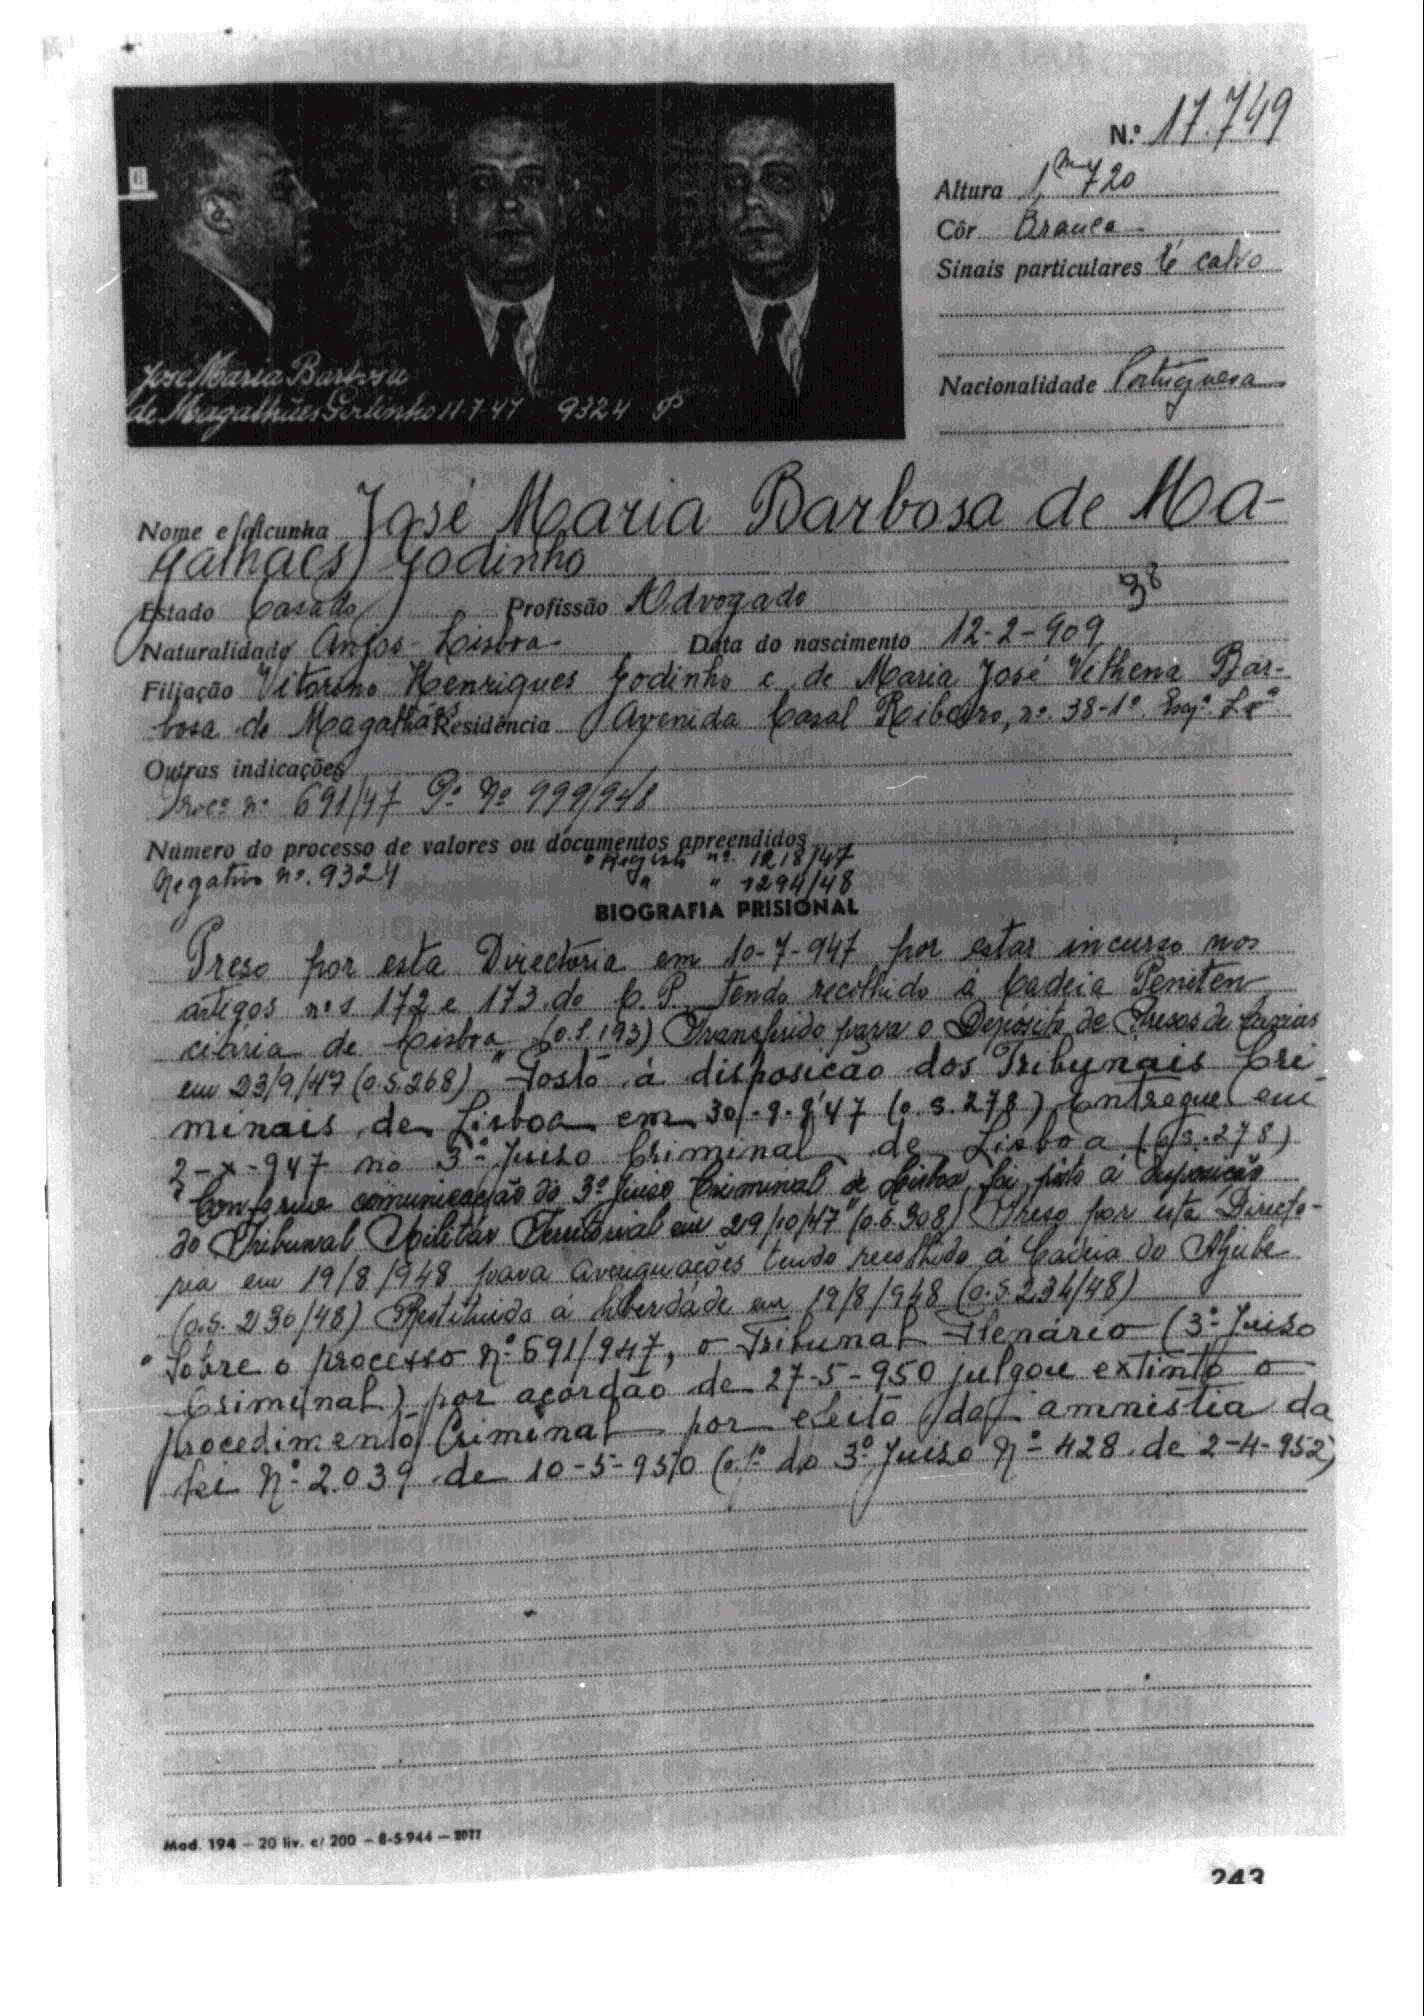 N.º 17.749
Altura 1,m720
Côr Branca
Sinais particulares É calvo
Nacionalidade Portuguesa
6
José Maria Barbosa
de Magalhães Godinho 11-7-47 9324
Nome e alcunha José Maria Barbosa de Ma-
galhães Godinho
38
Estado Casado Profissão Advogado
Naturalidade Anjos - Lisboa Data do nascimento 12-2-909
Filiação Vitorino Henriques Godinho e de Maria José Velhena Bar-
bosa de Magalhães Residência Avenida Casal Ribeiro, nº. 38-1º. Esqº. Lxª
Outras indicações
Procº nº 691/47 Pº Nº 999/948
Número do processo de valores ou documentos apreendidos
Negativo nº. 9324 " Registo nº. 1218/47
" " 1294/48
BIOGRAFIA PRISIONAL
Preso por esta Directoria em 10-7-947 por estar incurso nos
artigos nºs 172 e 173 do C. P. tendo recolhido à Cadeia Peniten
ciária de Lisboa (o.s.193) Transferido para o Deposito de Presos de Caxias
em 23/9/47 (o.s.268) " Posto á disposicão dos Tribunais Cri
minais de Lisboa em 30-9-947 (o.s.278) Entregue em
2-X-947 no 3º Juiso Criminal de Lisboa (o.s.278)
" Conforme comunicação do 3º Juiso Criminal de Lisboa foi pôsto á disposição
do Tribunal Militar Territorial em 29/10/47 " (o.s.308) Preso por esta Directo-
ria em 19/8/948 para averiguações tendo recolhido á Cadeia do Aljube
(o.s. 230/48) Restituido á liberdade em 19/8/948 (o.s.234/48)
" Sobre o processo Nº 691/947, o Tribunal Plenário (3º Juiso
Criminal) por acordão de 27-5-950 julgou extinto o
procedimento Criminal por efeito da amnistia da
Lei Nº 2.039 de 10-5-950 (o.fº do 3º Juiso Nº 428 de 2-4-952)
Mod. 194 — 20 liv. c/ 200 — 8-5-944 — 2077
243